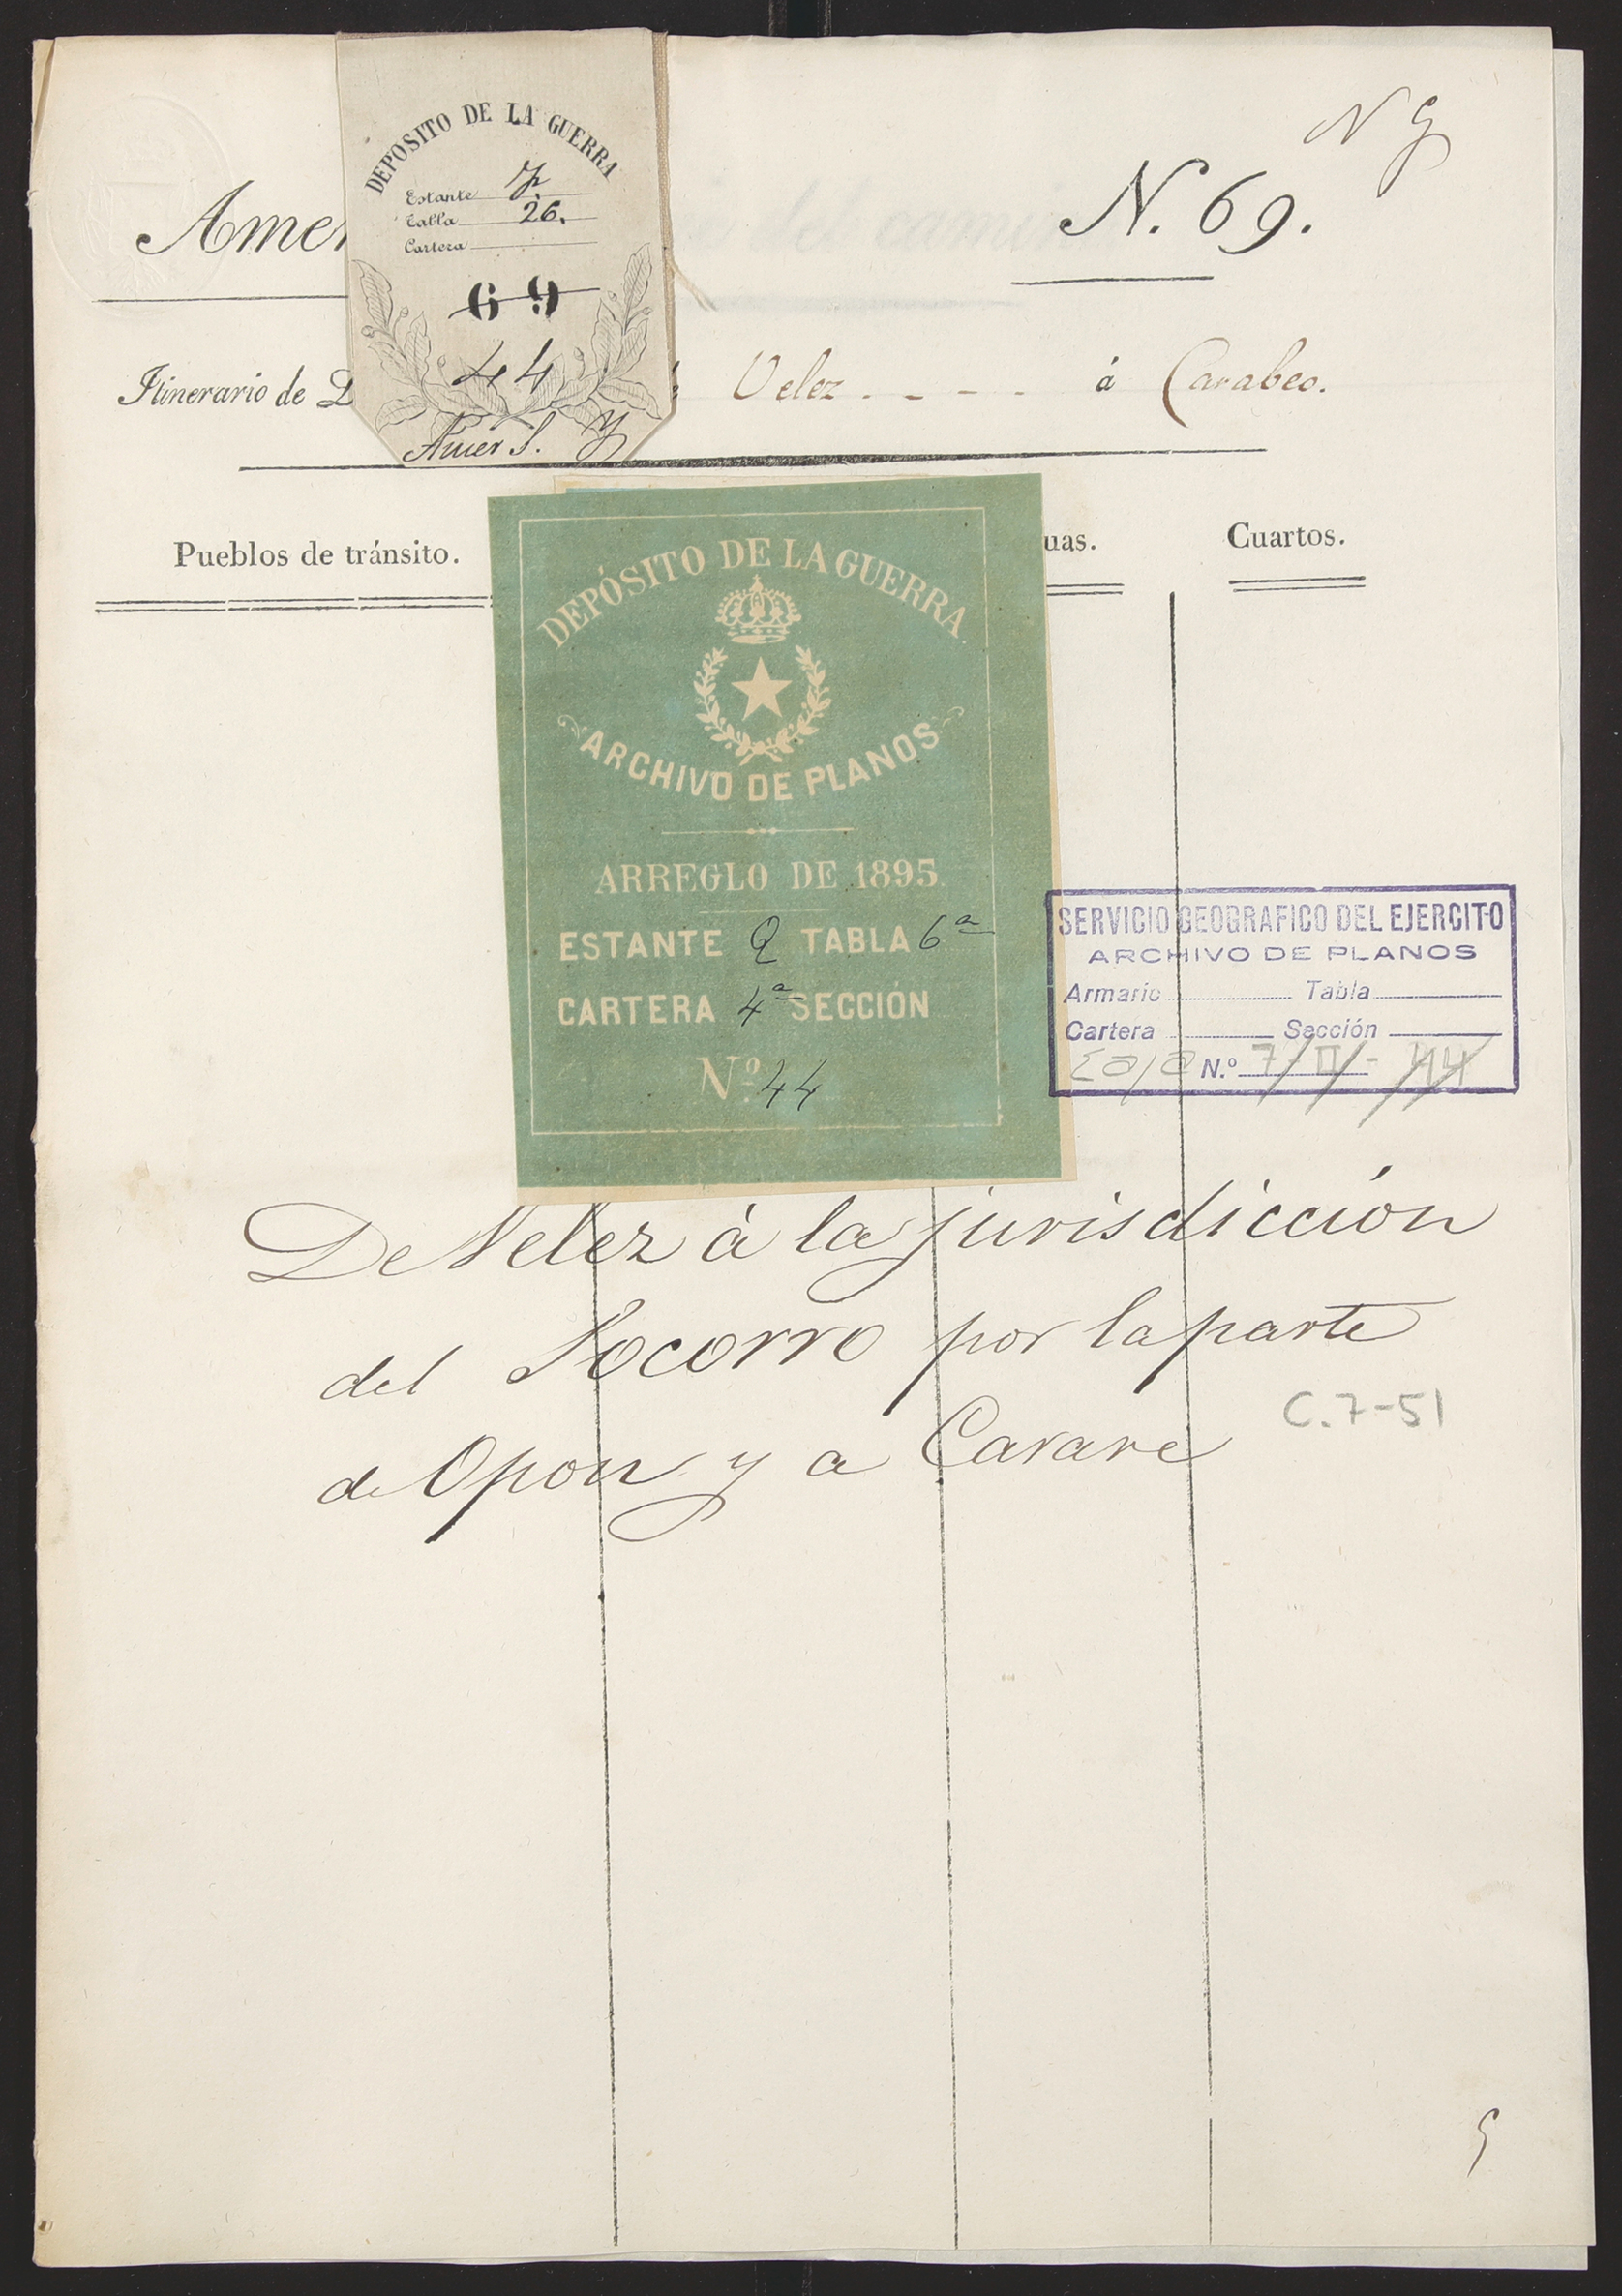 N G
DEPOSITO DE LA GUERRA
Estante
Tabla 26.
Cartera
69
44
Amer S.
N. 69.
Itinerario de
Velez . - - - . á Carabeo.
Pueblos de tránsito.
uas.
Cuartos.
DEPÓSITO DE LA GUERRA.
ARCHIVO DE PLANOS
ARREGLO DE 1895.
ESTANTE Q TABLA 6ª
CARTERA 4ª SECCIÓN
Nº 44
SERVICIO GEOGRAFICO DEL EJERCITO
ARCHIVO DE PLANOS
Armario Tabla
Cartera Sección
Caja N.º 7-II-44
De Velez à la jurisdicción
del Socorro por la parte
de Opon y a Carare
C.7-51